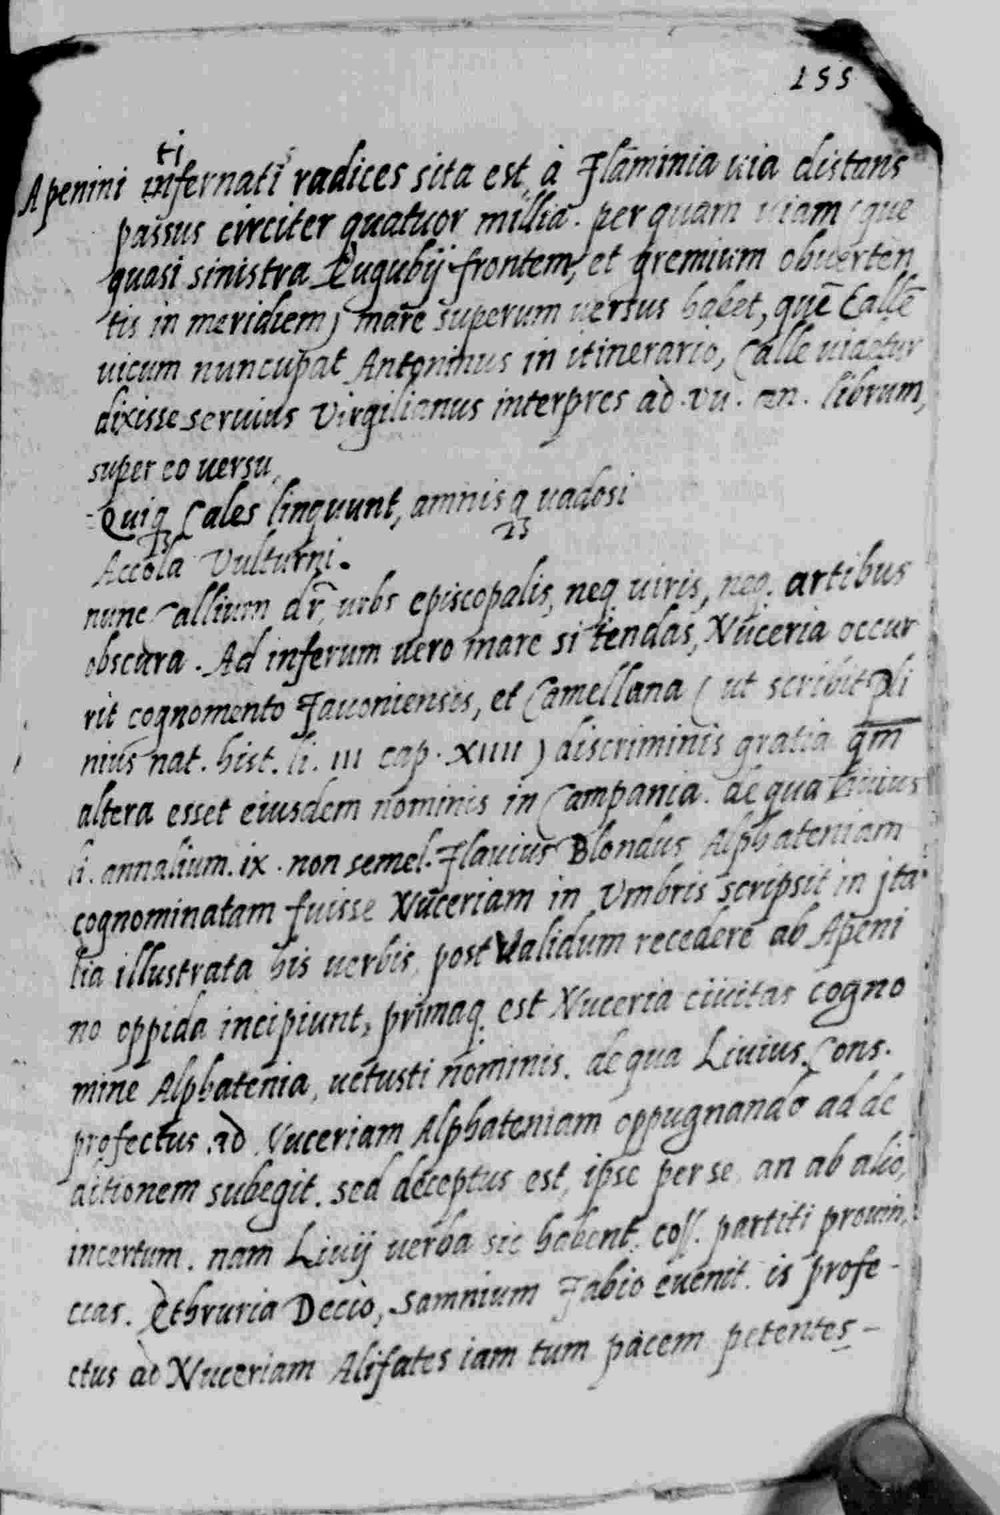 155
ti
Apenini infernati radices sita est, à Flaminia uia distans
passus circiter quatuor millia. per quam uiam (que
quasi sinistra Euguby frontem, et gremium obuerten
tis in meridiem) mare superum uersus habet, quē Callē
uicum nuncupat Antoninus in itinerario, Calle uidetur
dixisse seruius Virgilianus interpres ad .vii. æn. librum,
super eo uersu,
Quiq Cales linquunt, amnisq uadosi
Accola Vulturni.
nunc Callium dr̄, urbs episcopalis, neq uiris, neq. artibus
obscura. Ad inferum uero mare si tendas, Nuceria occur
rit cognomento Fauoniensis, et Camellana (ut scribit Pli
nius nat. hist. li. III cap. XIIII) discriminis gratia qm̄
altera esset eiusdem nominis in Campania. de qua Liuius
li. annalium. ix. non semel. Flauius Blondus Alphateniam
cognominatam fuisse Nuceriam in Umbris scripsit in Ita
lia illustrata his uerbis, post Validum recedere ab Apeni
no oppida incipiunt, primaq. est Nuceria ciuitas cogno
mine Alphatenia, uetusti nominis. de qua Liuius. Cons.
profectus ad Nuceriam Alphateniam oppugnando ad de
ditionem subegit. sed deceptus est, ipse per se, an ab alio,
incertum. nam Liuij uerba sic habent. coss. partiti prouin,
cias. Ethruria Decio, Samnium Fabio euenit. is profe-
ctus ad Nuceriam Alifates iam tum pacem petentes-